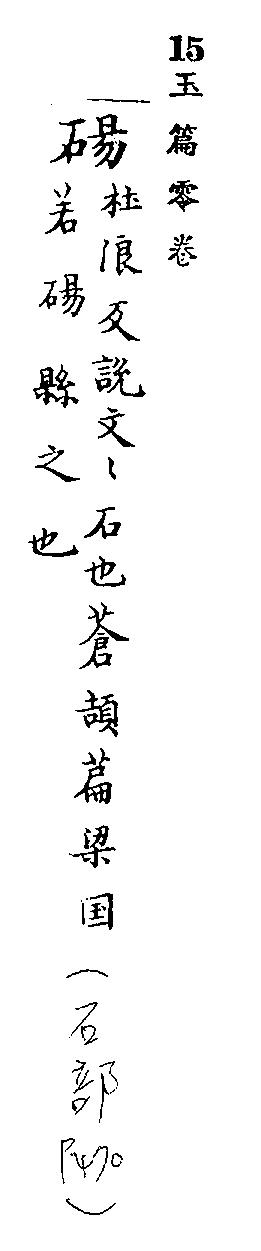 15玉篇零卷
碭杜浪反說文〻石也蒼頡篇梁国(石部P470)
若碭縣之也